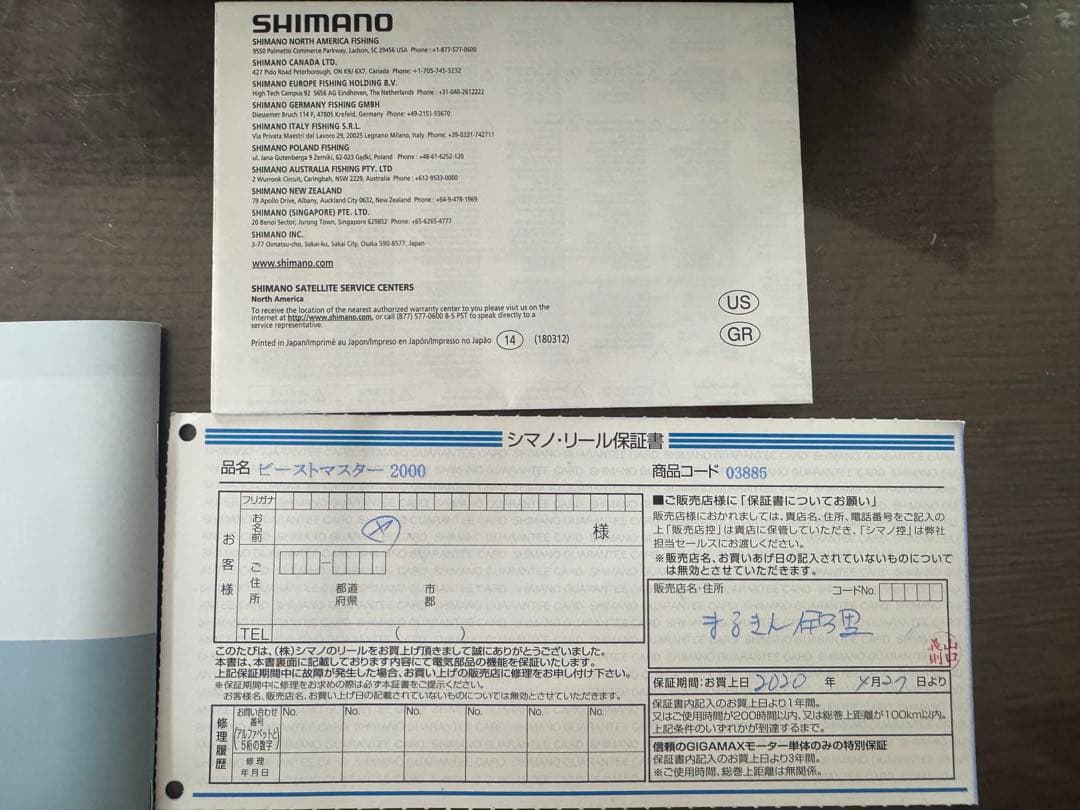 SHIMANO
SHIMANO NORTH AMERICA FISHING
9550 Palmetto Commerce Parkway, Ladson, SC 29456 USA Phone : +1-877-577-0600
SHIMANO CANADA LTD.
427 Pido Road Peterborough, ON K9J 6X7, Canada Phone: +1-705-745-3232
SHIMANO EUROPE FISHING HOLDING B.V.
High Tech Campus 92 5656 AG Eindhoven, The Netherlands Phone : +31-040-2612222
SHIMANO GERMANY FISHING GMBH
Diessemer Bruch 114 F, 47805 Krefeld, Germany Phone: +49-2151-55670
SHIMANO ITALY FISHING S.R.L.
Via Privata Maestri del Lavoro 29, 20025 Legnano Milano, Italy Phone: +39-0331-742711
SHIMANO POLAND FISHING
ul. Jana Gutenberga 9 Żerniki, 62-023 Gądki, Poland Phone : +48-61-6252-120
SHIMANO AUSTRALIA FISHING PTY. LTD
2 Wurrook Circuit, Caringbah, NSW 2229, Australia Phone : +612-9533-0000
SHIMANO NEW ZEALAND
79 Apollo Drive, Albany, Auckland City 0632, New Zealand Phone : +64-9-478-1969
SHIMANO (SINGAPORE) PTE. LTD.
20 Benoi Sector, Jurong Town, Singapore 629852 Phone: +65-6265-4777
SHIMANO INC.
3-77 Oimatsu-cho, Sakai-ku, Sakai City, Osaka 590-8577, Japan
www.shimano.com
SHIMANO SATELLITE SERVICE CENTERS
North America
To receive the location of the nearest authorized warranty center to you please visit us on the
internet at http://www.shimano.com, or call (877) 577-0600 8-5 PST to speak directly to a
service representative.
Printed in Japan/Imprimé au Japon/Impreso en Japón/Impresso no Japão 14 (180312)
US
GR
シマノ・リール保証書
品名 ビーストマスター 2000
商品コード 03885
フリガナ
お客様
お名前
様
ご住所
都道府県
市郡
TEL ( )
このたびは、(株)シマノのリールをお買上げ頂きまして誠にありがとうございました。
本書は、本書裏面に記載しております内容にて電気部品の機能を保証いたします。
上記保証期間中に故障が発生した場合、お買い上げの販売店に修理をお申し付け下さい。
※保証期間中に修理をお求めの際は必ず本証書をご提示ください。
お客様名、販売店名、お買い上げ日の記載されていないものについては無効とさせていただきます。
修理履歴
お問い合わせ番号(アルファベットと5桁の数字)
No. No. No. No. No. No.
修理年月日
■ご販売店様に「保証書についてお願い」
販売店様におかれましては、貴店名、住所、電話番号をご記入の
上「販売店控」は貴店に保管していただき、「シマノ控」は弊社
担当セールスにお渡しください。
※販売店名、お買いあげ日の記入されていないものについて
は無効とさせていただきます。
販売店名・住所 コードNo.
まるきん
山口
保証期間:お買上日 2020 年 4月27 日より
保証書内記入のお買上日より1年間。
又はご使用時間が200時間以内、又は総巻上距離が100km以内。
上記条件のいずれかが到達するまで。
信頼のGIGAMAXモーター単体のみの特別保証
保証書内記入のお買上日より3年間。
※ご使用時間、総巻上距離は無関係。